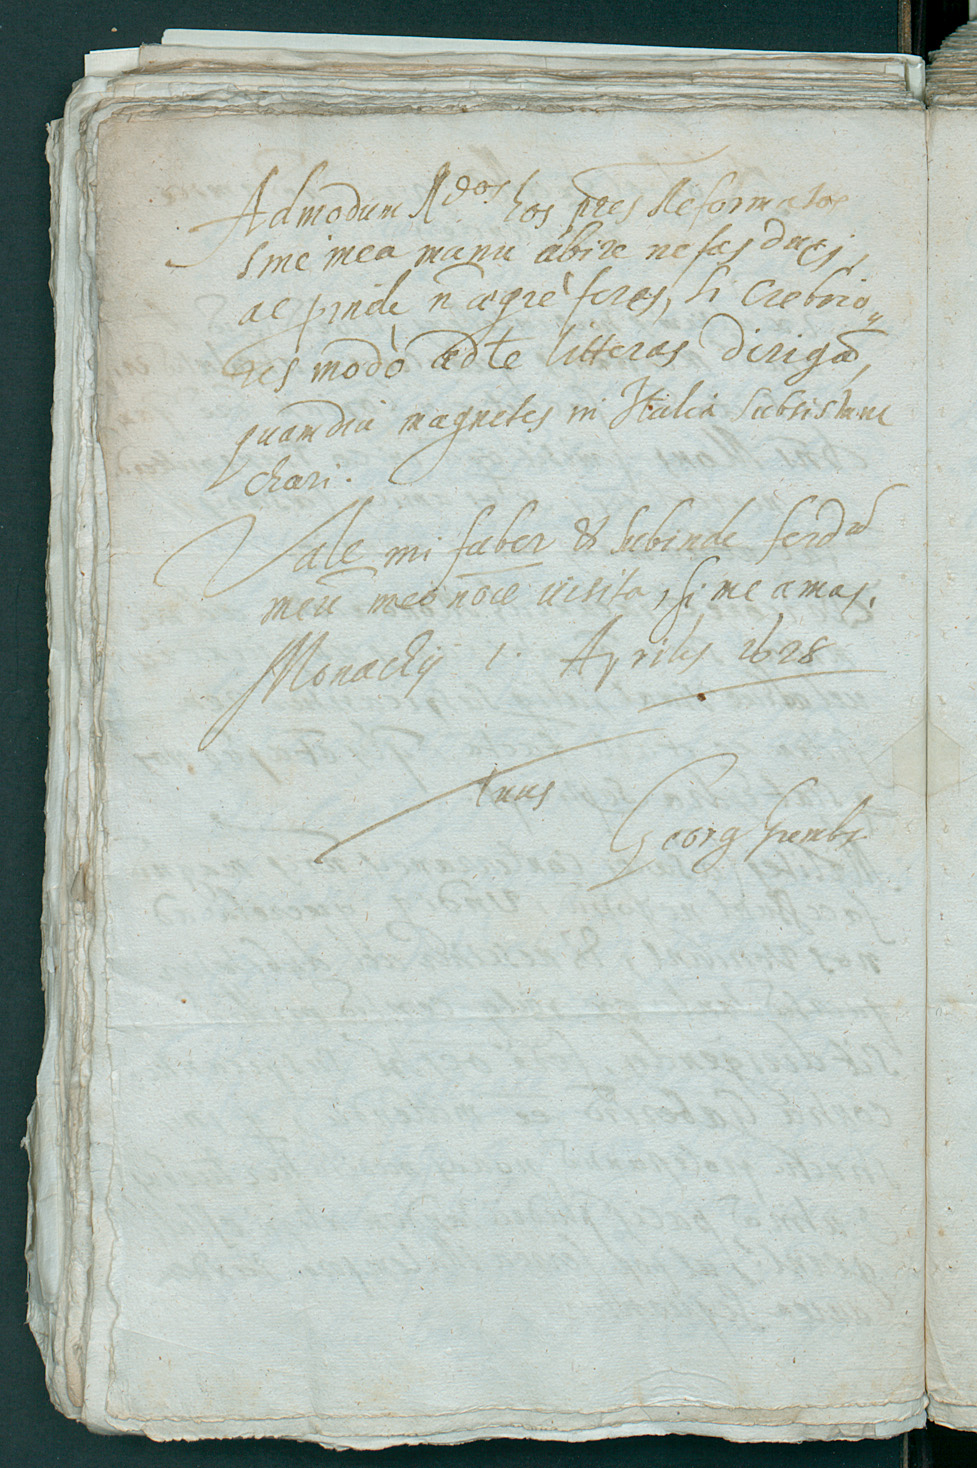 Admodum R.dos hos pres Reformatos
sine mea manu abire nefas duxi,
ac pinde n ægrè feres, si crebrio„
res modò ad te litteras dirigā,
quamdiu magnetes in Italia subsistunt
chari.
Vale mi faber & subinde ferd.
meū meo noīe visita, si me amas.
Monachij 1. Aprilis 1628
tuus
Georg